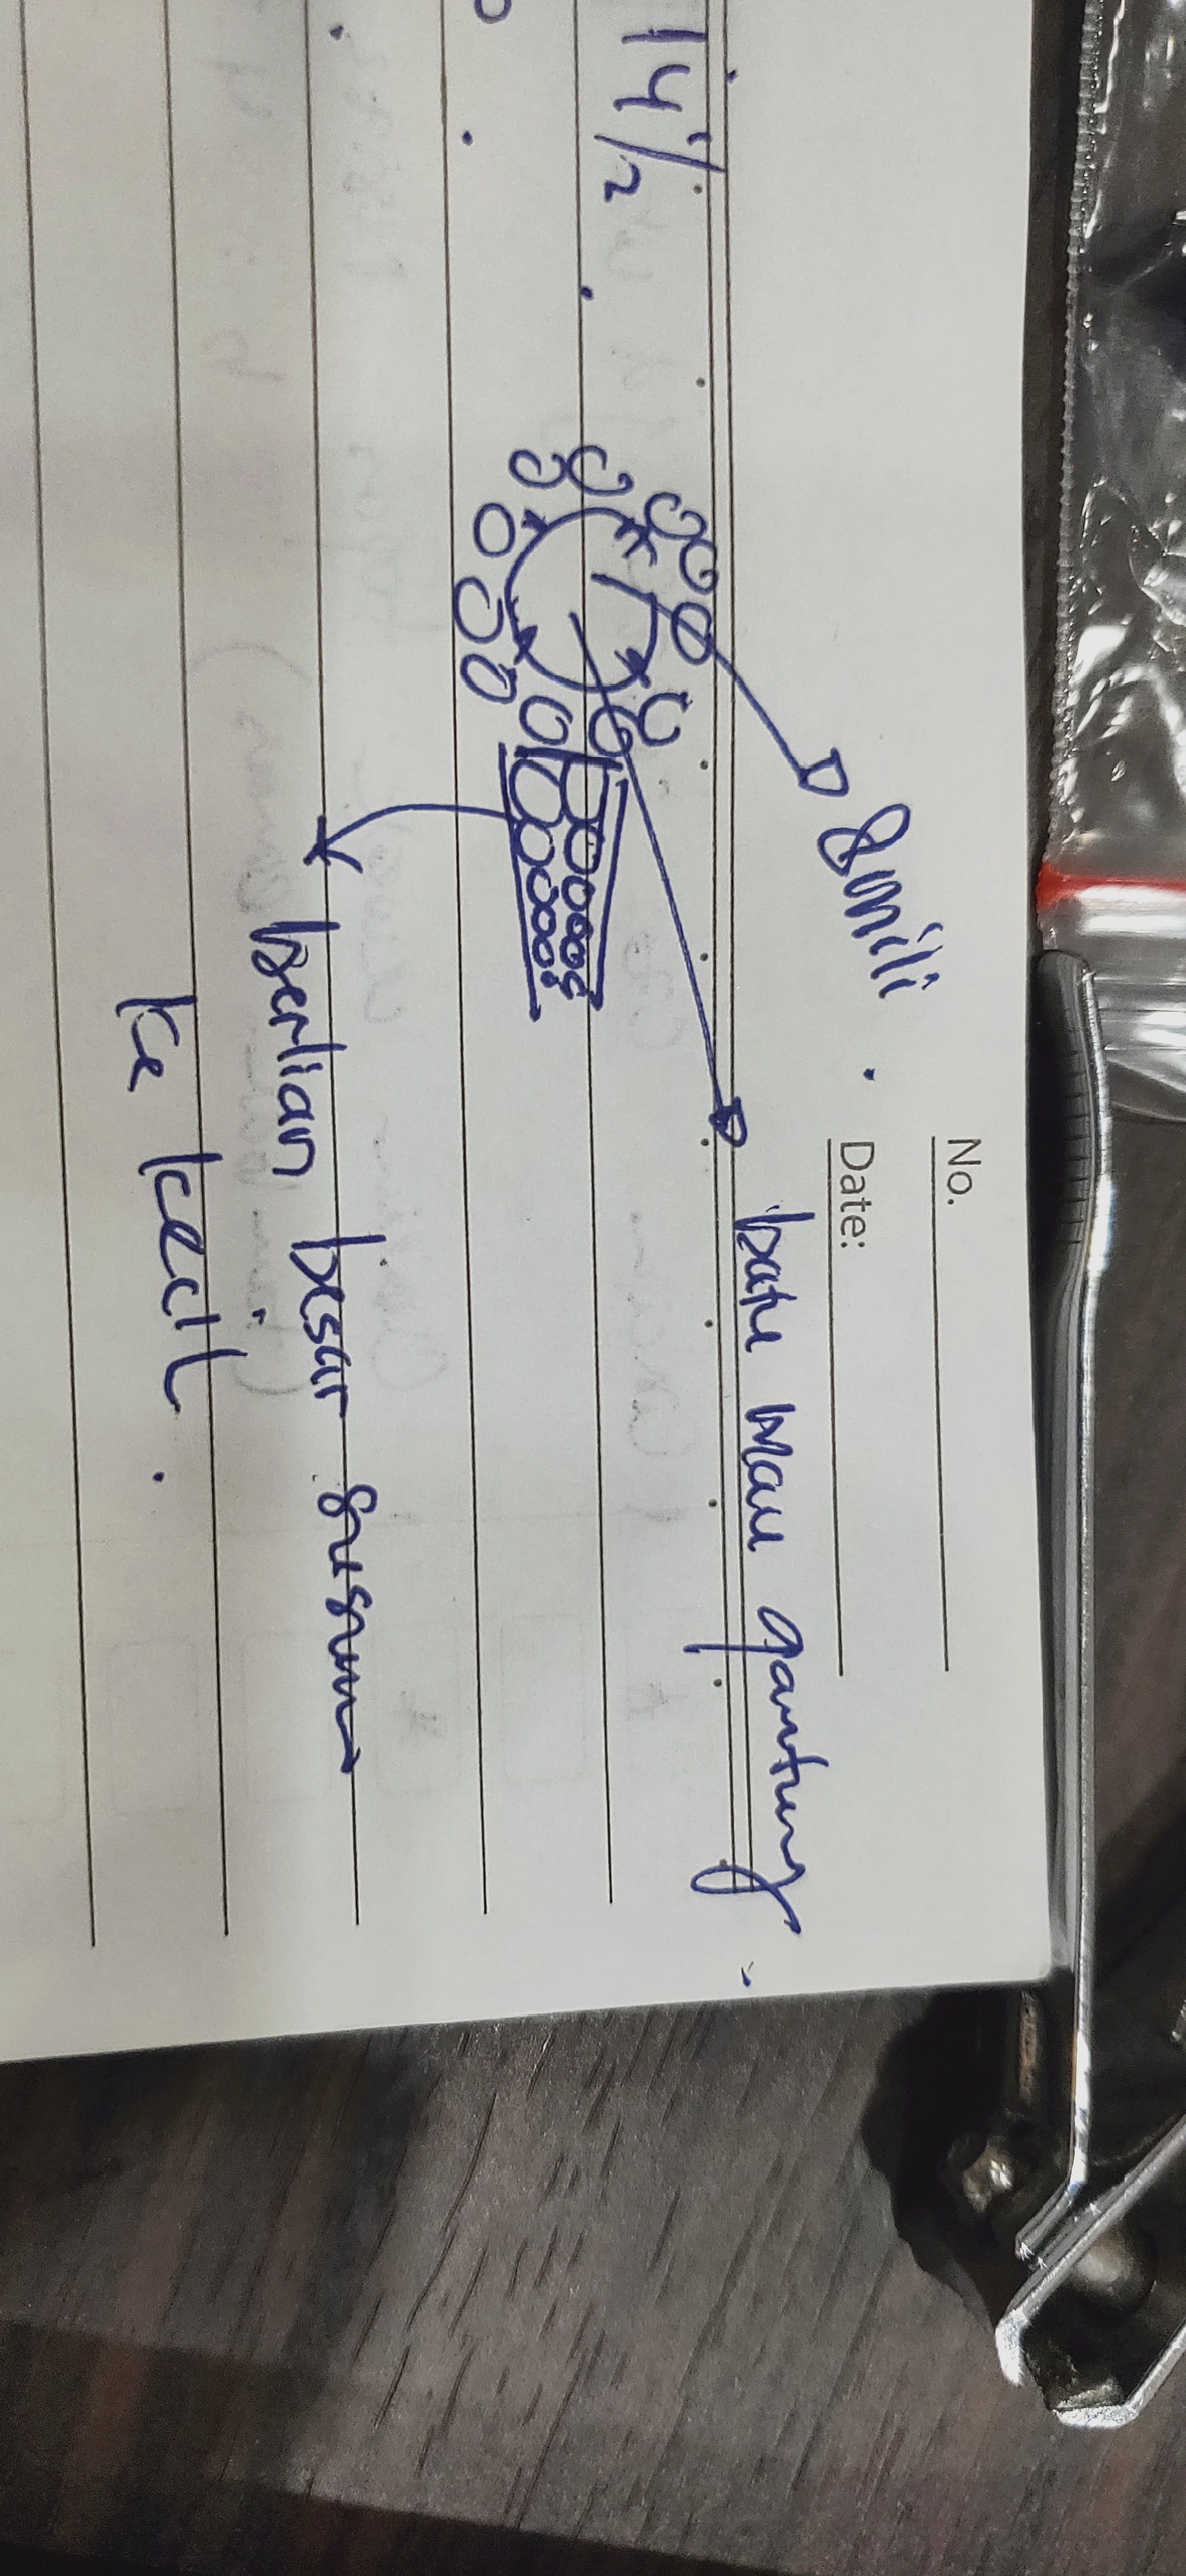 No.
Date:
8 mili.
batu mau gantung.
14 1/2
berlian besar susun
ke kecil.